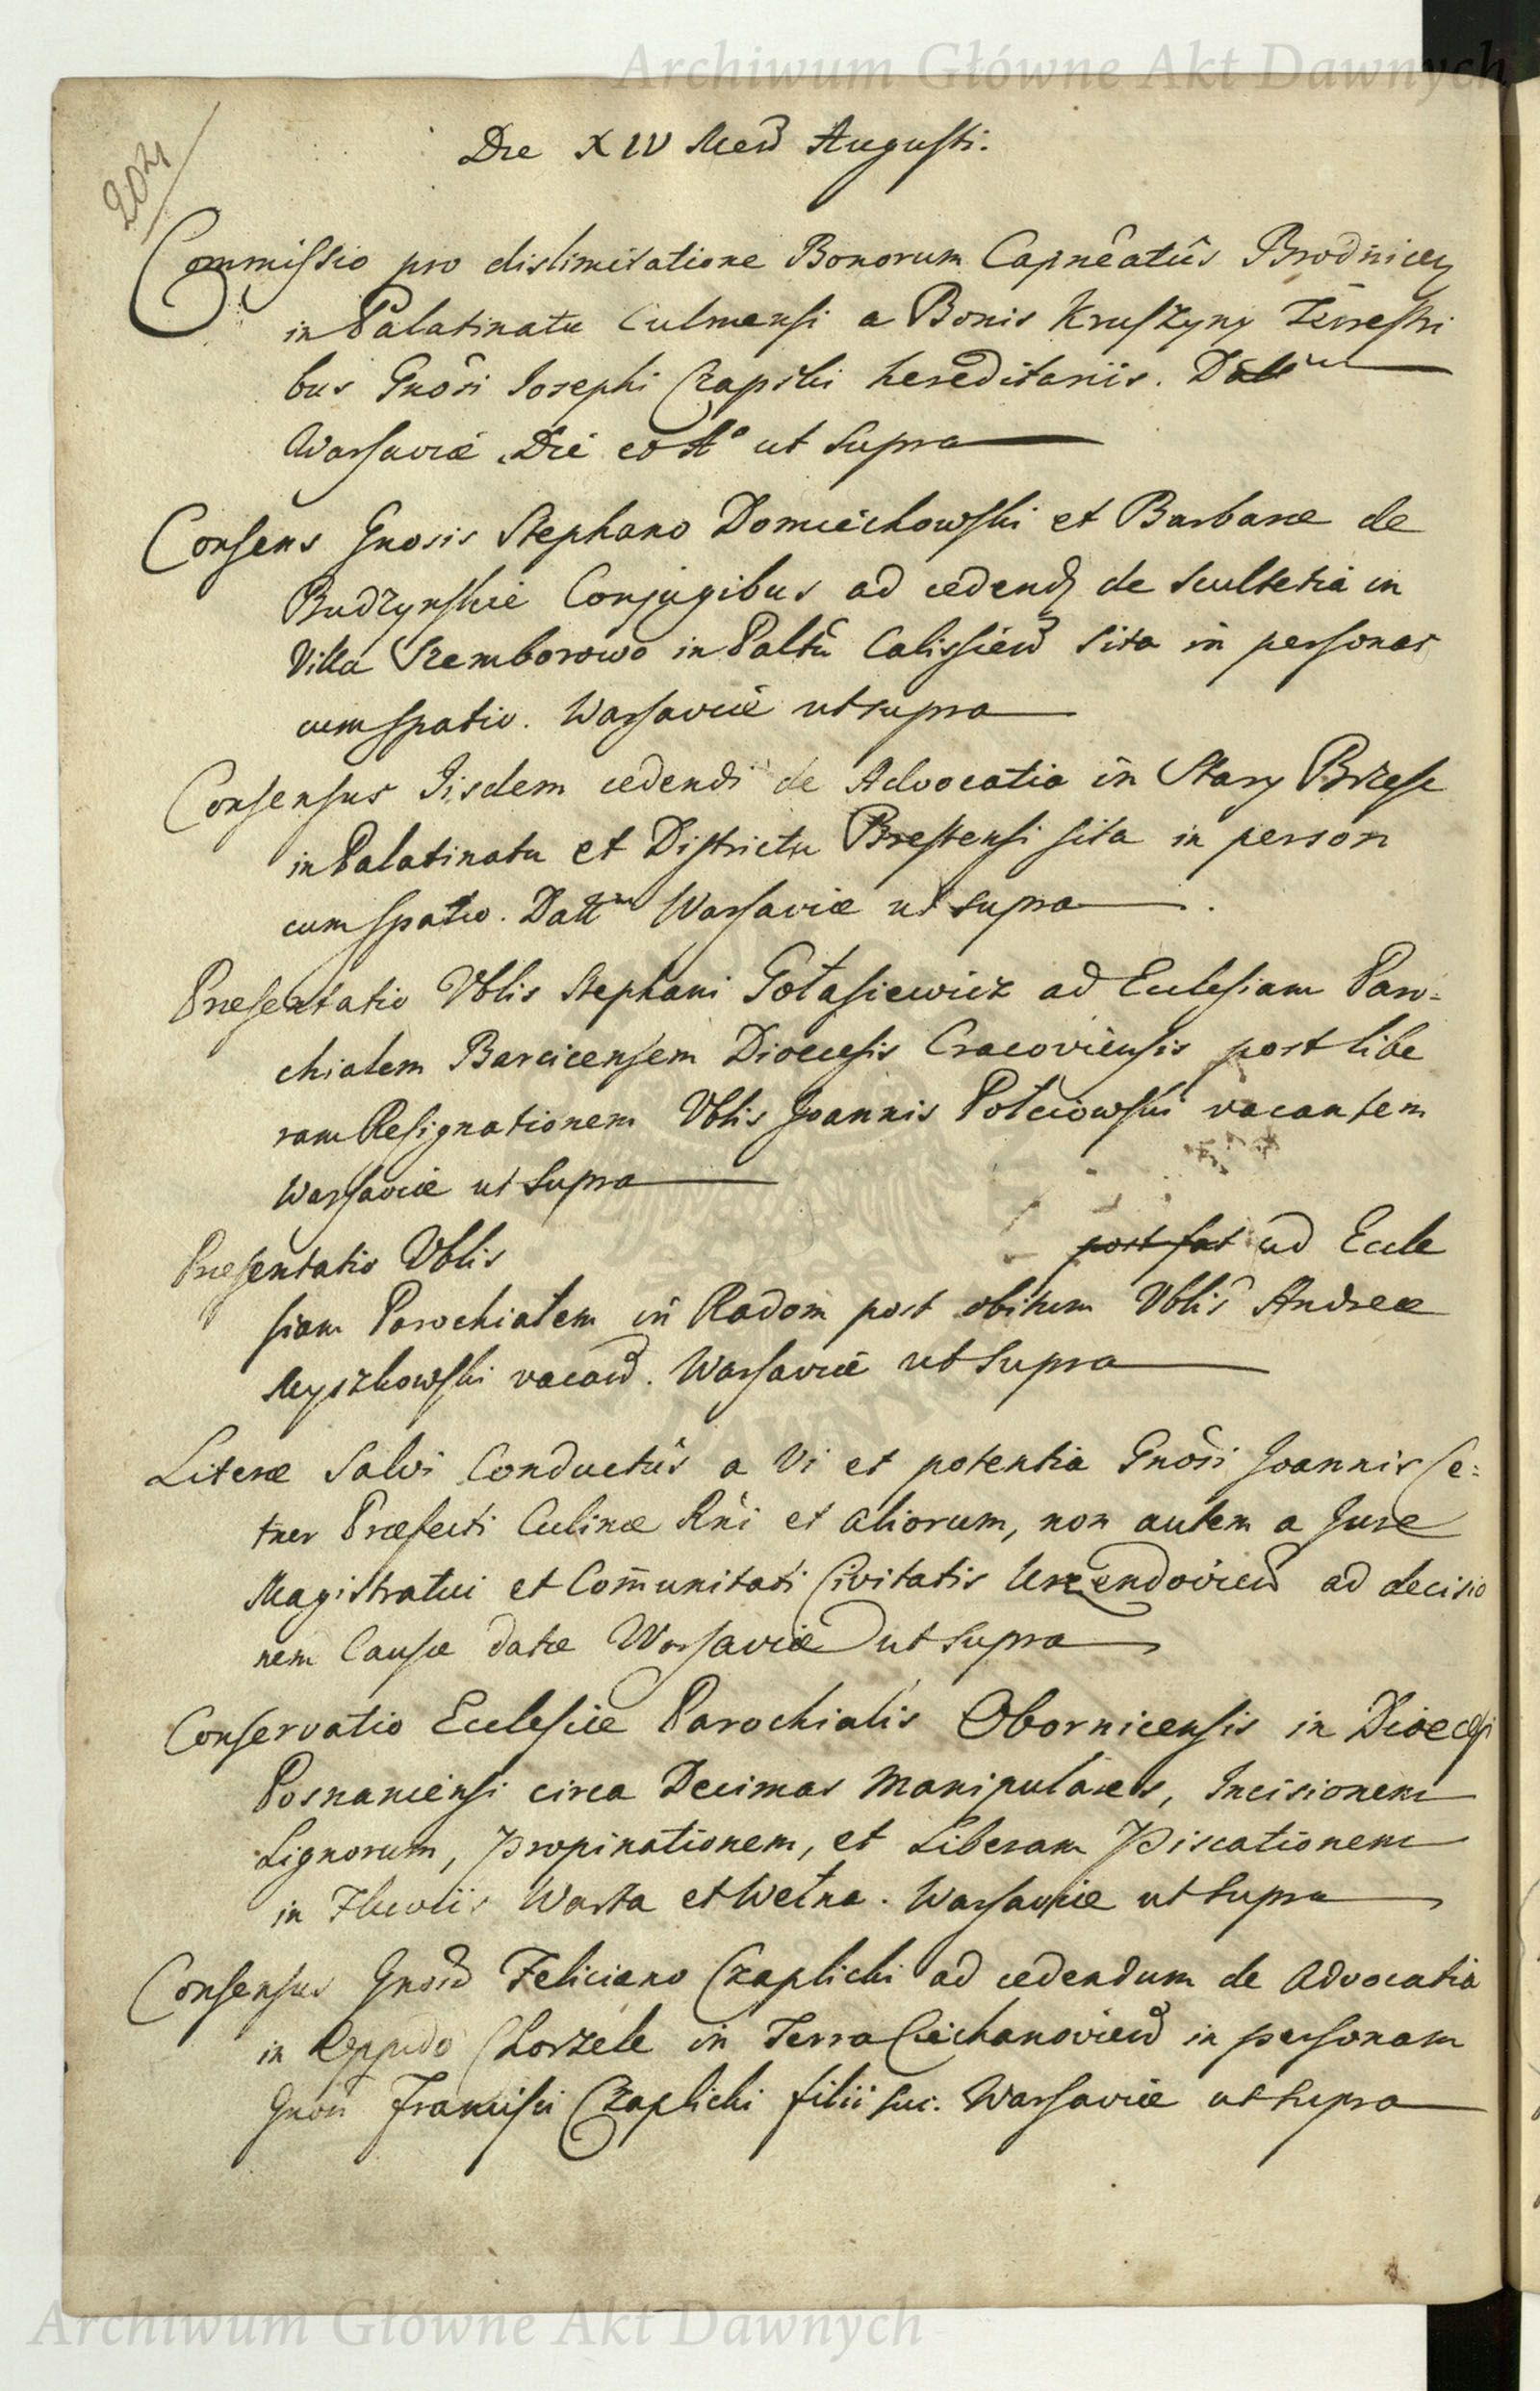 Archiwum Główne Akt Dawnych
204
Die XIV Men̄ Augusti.
Commissio pro dislimitatione Bonorum Capnēatûs Brodnicen̄
in Palatinatu Culmensi a Bonis Kruszyny Terrestri
bus Gnôsi Josephi Czapski hereditariis. Dattum
Warsaviæ Die eo Aº ut supra
Consens Gnosis Stephano Domiechowski et Barbaræ de
Budzynskie Conjugibus ad cedend̄ de Scultetia in
Villa Szemborowo in Paltū Calissien̄ sita in personas
cum spatio. Warsaviæ ut supra
Consensus Iisdem cedendi de Advocatia in Stary Brzesc
in Palatinatu et Districtu Brestensi sita in person
cum spatio. Dattm Warsaviæ ut supra.
Præsentatio Vblis Stephani Gołasiewicz ad Eculesiam Paro=
chialem Barcicensem Dioecesis Cracoviensis post libe
ram Resignationem Vblis Joannis Połciowski vacantem
Warsaviæ ut supra
Præsentatio Vblis post fat ad Eccle
siam Parochialem in Radom post obitum Vblis Andreæ
Myszkowski vacan̄. Warsaviæ ut supra
Literæ Salvi Conductûs a vi et potentia Gnôsi Joannis Ce=
tner Præfecti Culinæ Rni et aliorum, non autem a Jure
Magistratui et Com̄unitati Civitatis Urzendovien̄ ad decisio
nem Causæ datæ Warsaviæ ut supra
Conservatio Ecclesiæ Parochialis Obornicensis in Dioecesi
Posnaniensi circa Decimas Manipulares, Incisionem
Lignorum, Propinationem, et Liberam Piscationem
in Fluviis Warta et Wełna. Warsaviæ ut supra
Consensus Gnosō Feliciano Czaplicki ad cedendum de Advocatia
in Oppido Chorzele in Terra Ciechanovien̄ in personam
Gnosi Francisci Czaplicki filii sui. Warsaviæ ut supra
Archiwum Główne Akt Dawnych